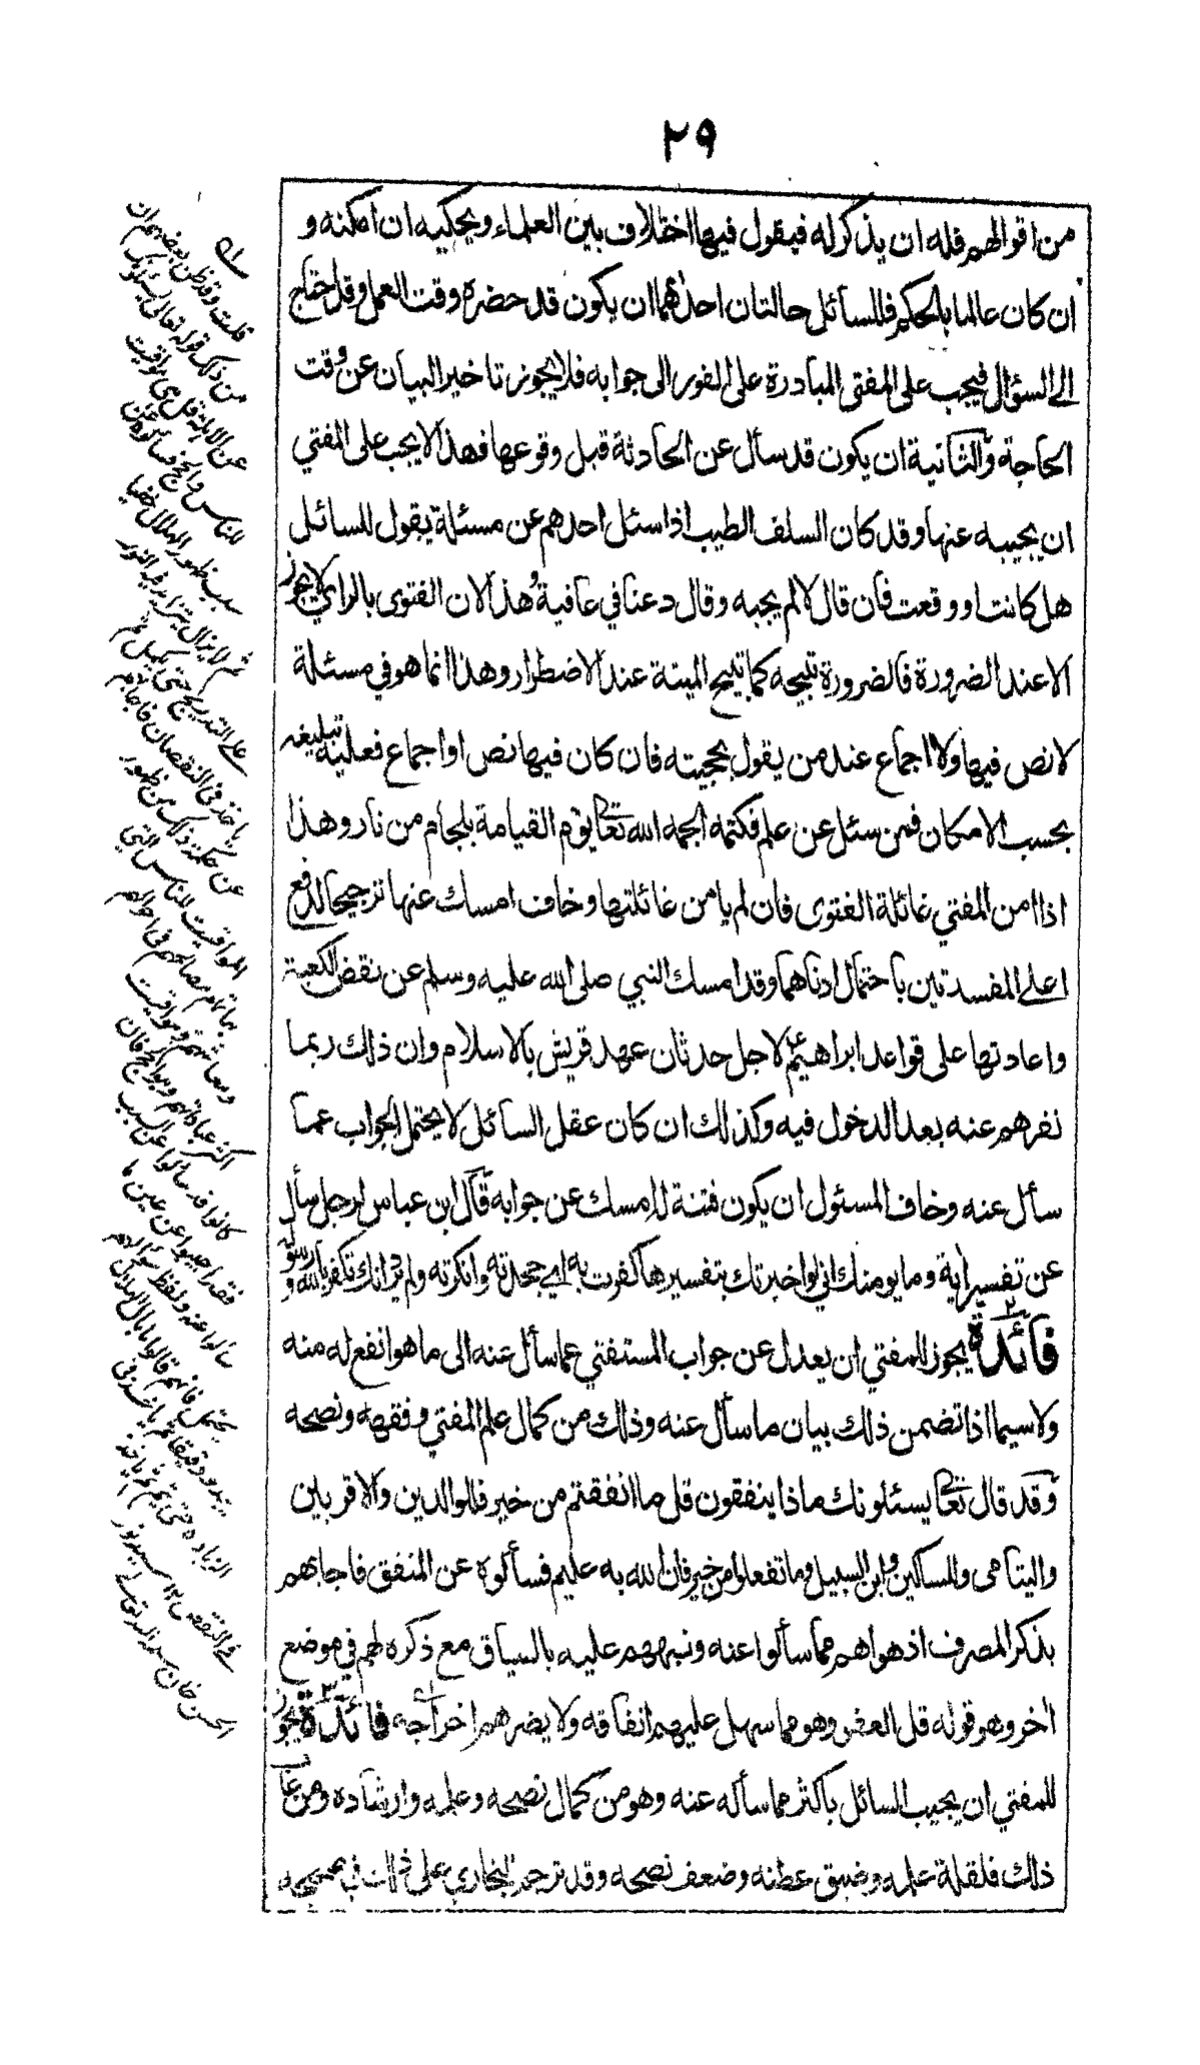 ٢٩
من اقوالهم فله ان يذكر له فيقول فيها اختلاف بين العلماء ويحكيه ان امكنه و
ان كان عالما بالحكم فللسائل حالتان احدٰهما ان يكون قد حضره وقت العمل وقد احتاج
الى السؤال فيجب على المفتي المبادرة على الفور الى جوابه فلا يجوز تاخير البيان عن وقت
الحاجة والثانية ان يكون قد سأل عن الحادثة قبل وقوعها فهذا لا يجب على المفتي
ان يجيبه عنها وقد كان السلف الطيب اذا سئل احدهم عن مسئلة يقول للسائل
هل كانت او وقعت فان قال لا لم يجبه وقال دعنا في عافية وهذا لان الفتوى بالراي لا يجوز
الا عند الضرورة فالضرورة تبيحه كما تبيح الميتة عند الاضطرار وهذا انما هو في مسئلة
لا نص فيها ولا اجماع عند من يقول بحجيته فان كان فيها نص او اجماع فعليه تبليغه
بحسب الامكان فمن سئل عن علم فكتمه الجمه الله تعالى يوم القيامة بلجام من نار وهذا
اذا امن المفتي غائلة الفتوى فان لم يامن غائلتها وخاف امسك عنها ترجيحا لدفع
اعلى المفسدتين باحتمال ادناهما وقد امسك النبي صلى الله عليه وسلم عن نقض الكعبة
واعادتها على قواعد ابراهيم لاجل حدثان عهد قريش بالاسلام وان ذلك ربما
نفرهم عنه بعد الدخول فيه وكذلك ان كان عقل السائل لا يحتمل الجواب عما
سأل عنه وخاف المسئول ان يكون فتنة له امسك عن جوابه قال ابن عباس لرجل سأل
عن تفسير اية وما يومنك اني لو اخبرتك بتفسيرها كفرت به اي جحدته وانكرته ولم يرد انك تكفر بالله ورسوله
فائدة ٢ يجوز للمفتي ان يعدل عن جواب المستفتي عما سأل عنه الى ما هو انفع له منه
ولا سيما اذا تضمن ذلك بيان ما سأل عنه وذلك من كمال علم المفتي وفقهه ونصحه
وقد قال تعالى يسئلونك ماذا ينفقون قل ما انفقتم من خير فللوالدين والاقربين
واليتامى والمساكين وابن السبيل وما تفعلوا من خير فان الله به عليم فسألوه عن المنفق فاجابهم
بذكر المصرف اذ هو اهم مما سألوا عنه ونبههم عليه بالسياق مع ذكره لهم في موضع
اخر وهو قوله قل العفو وهو مما سهل عليهم انفاقه ولا يضرهم اخراجه فائدة ٣ يجوز
للمفتي ان يجيب السائل باكثر مما سأله عنه وهو من كمال نصحه وعلمه وارشاده ومن عاب
ذلك فلقلة علمه وضيق عطنه وضعف نصحه وقد ترجم البخاري على ذلك في صحيحه
قلت وقد ظن بعضهم ان
من ذلك قوله تعالى يسئلونك
عن الاهلة قل هي مواقيت
للناس والحج فسألوه عن
سبب ظهور الهلال خفيا
ثم لا يزال يتزايد فيه النور
على التدريج حتى يكمل ثم
ياخذ في النقصان فاجابهم
عن حكمة ذلك من ظهور
المواقيت للناس التي
بها تمام مصالحهم في احوالهم
ومعاشهم ومواقيت
اكبر عباداتهم وهو الحج فان
كانوا قد سألوا عن السبب
فقد اجيبوا عن عين ما
سألوا عنه ولفظ سؤالهم
يحتمل فانهم قالوا ما بال الهلال
يبدو دقيقا ثم ياخذ في
الزيادة حتى يتم ثم ياخذ
في النقص ١٢